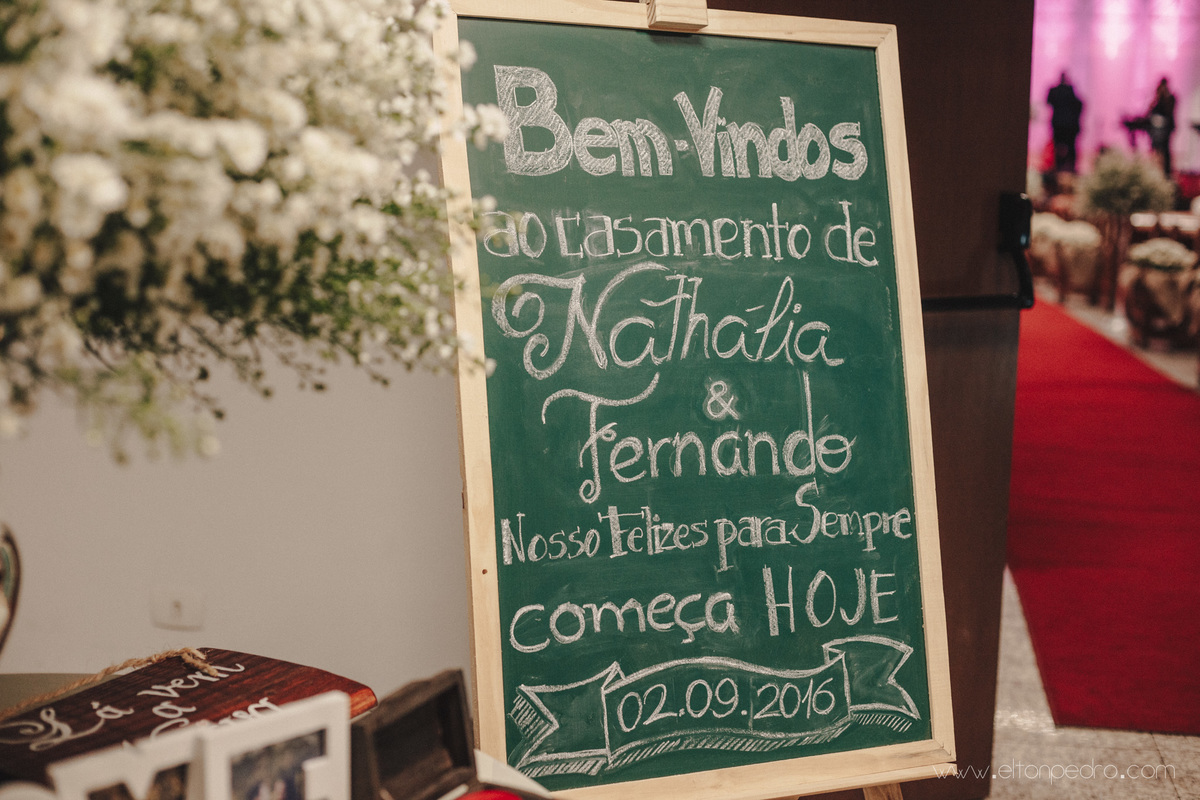 Bem-Vindos
ao casamento de
Nathália
&
Fernando
Nosso Felizes para Sempre
começa HOJE
02.09.2016
Lá vem
a
www.eltonpedro.com